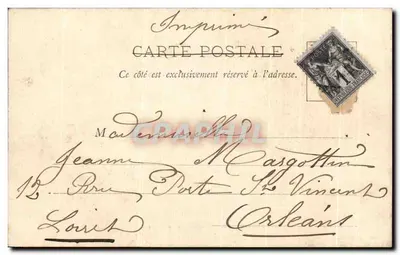 Imprimé
CARTE POSTALE
Ce côté est exclusivement réservé à l'adresse.
Mademoiselle
Jeanne Margottin
12, Rue Porte St Vincent
Loiret Orléans